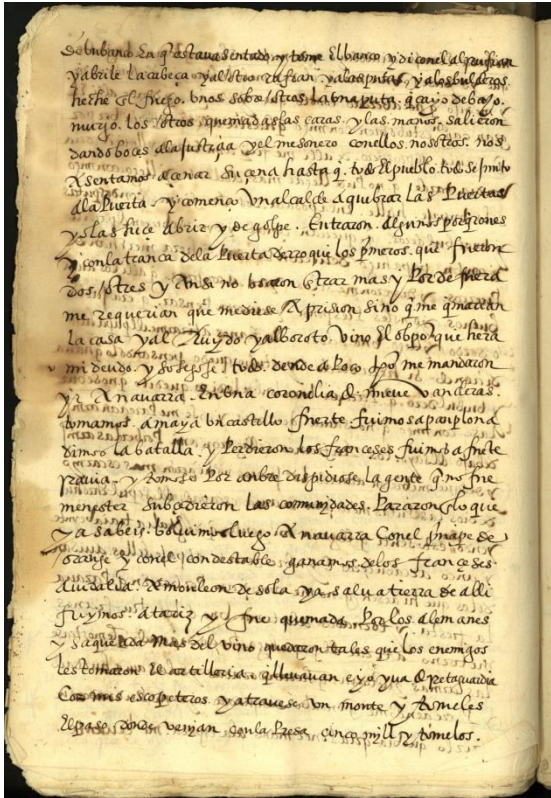 de un banco en q̃ estava sentado, y tome el banco, y di con el al rrufian
y abrile la cabeça y al otro rrufian y a las putas, y a los bulderos
heche en el fuego. unos sobre otros, la una puta q̃ cayo debajo.
murjo. los otros quemadas las caras. y las manos. salieron
dando boces a la justiçia y el mesonero con ellos. nosotros. nos
asentamos a çenar su çena hasta q̃ todo el pueblo. todo se junto
a la puerta. y començo un alcalde a quebrar las Puertas
y se las hice abrir y de golpe. Entraron. algunos porquerones
y con la tranca de la Puerta derroque los prímeros. que fueron
dos o tres y Ansi no osaron entrar mas y Por de fuera
me requerian que me diese A prision sino q̃ me quemarian
la casa y al Ruydo y alboroto vino el obpo que hera
mi deudo. y sosegose todo. dende a Poco tpo me mandaron
yr A navarra. En una coronelia de nueve vanderas.
tomamos. amaya un castillo fuerte fuimos a panplona
dimos la batalla. y Perdieron los franceses fuimos a fuete
rravia. y tomose Por anbre dispidiose, la gente q̃ no fue
menester Subcedieron las comunidades. Pararon en lo que
ya sabeis. bolvimos luego A navarra Con el prinçipe de
orange y con el condestable, ganamos de los franceses
a monleon de sola y a salvatierra de alli
fuymos. y fue quemada Por los alemanes
y saqueada mas del vino quedaron tales que los enemigos
les tomaron el artilleria. q̃ llevavan. e yo yva de retaguardia
Con mis escopeteros y atravese un monte y tomeles
El paso, donde venjan con la Presa, cinco mill y tomelos.